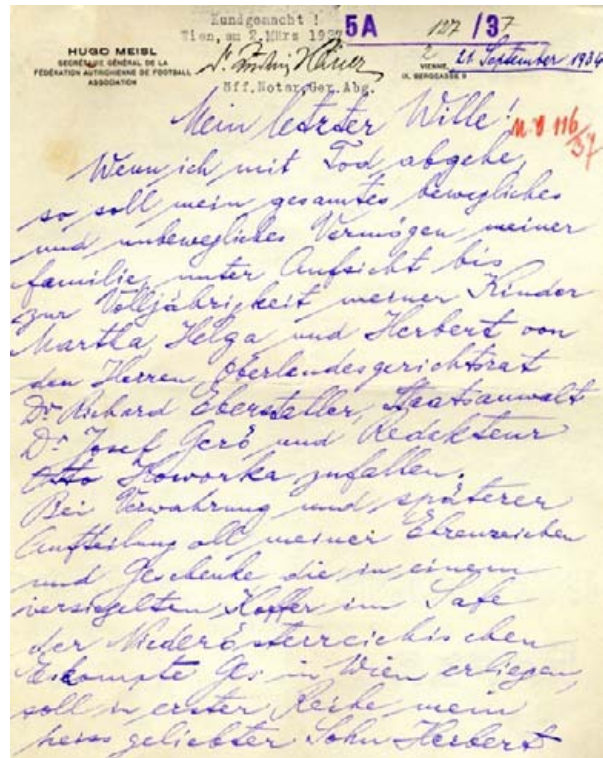 Kundgemacht !
Wien, am 2.März 1937
5A 127 /37
HUGO MEISL
SECRÉTAIRE GÉNÉRAL DE LA
FÉDÉRATION AUTRICHIENNE DE FOOTBALL
ASSOCIATION
VIENNE, 21. September 1934
IX. BERGGASSE 9
Öff.Notar.Ger.Abg.
Mein letzter Wille!
116/37
Wenn ich mit Tod abgehe,
so soll mein gesamtes bewegliches
und unbewegliches Vermögen meiner
Familie, unter Aufsicht bis
zur Volljährigkeit meiner Kinder
Martha, Helga und Herbert von
den Herren Oberlandesgerichtsrat
Dr Richard Eberstaller, Staatsanwalt
Dr Josef Gerö und Redakteur
Otto Howorka zufallen.
Bei Verwahrung und späterer
Aufteilung all meiner Ehrenzeichen
und Geschenke die in einem
versiegelten Koffer im Safe
der Niederösterreichischen
Eskompte Ges. in Wien erliegen,
soll in erster Reihe mein
heiss geliebter Sohn Herbert